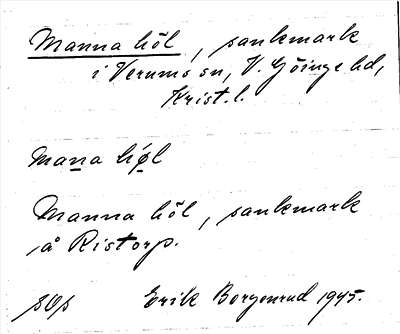 Manna höl, sankmark
i Verums sn, V. Göinge hd,
Krist. l.
Manna höl, sankmark
å Ristorp.
Erik Borgenrud 1945.